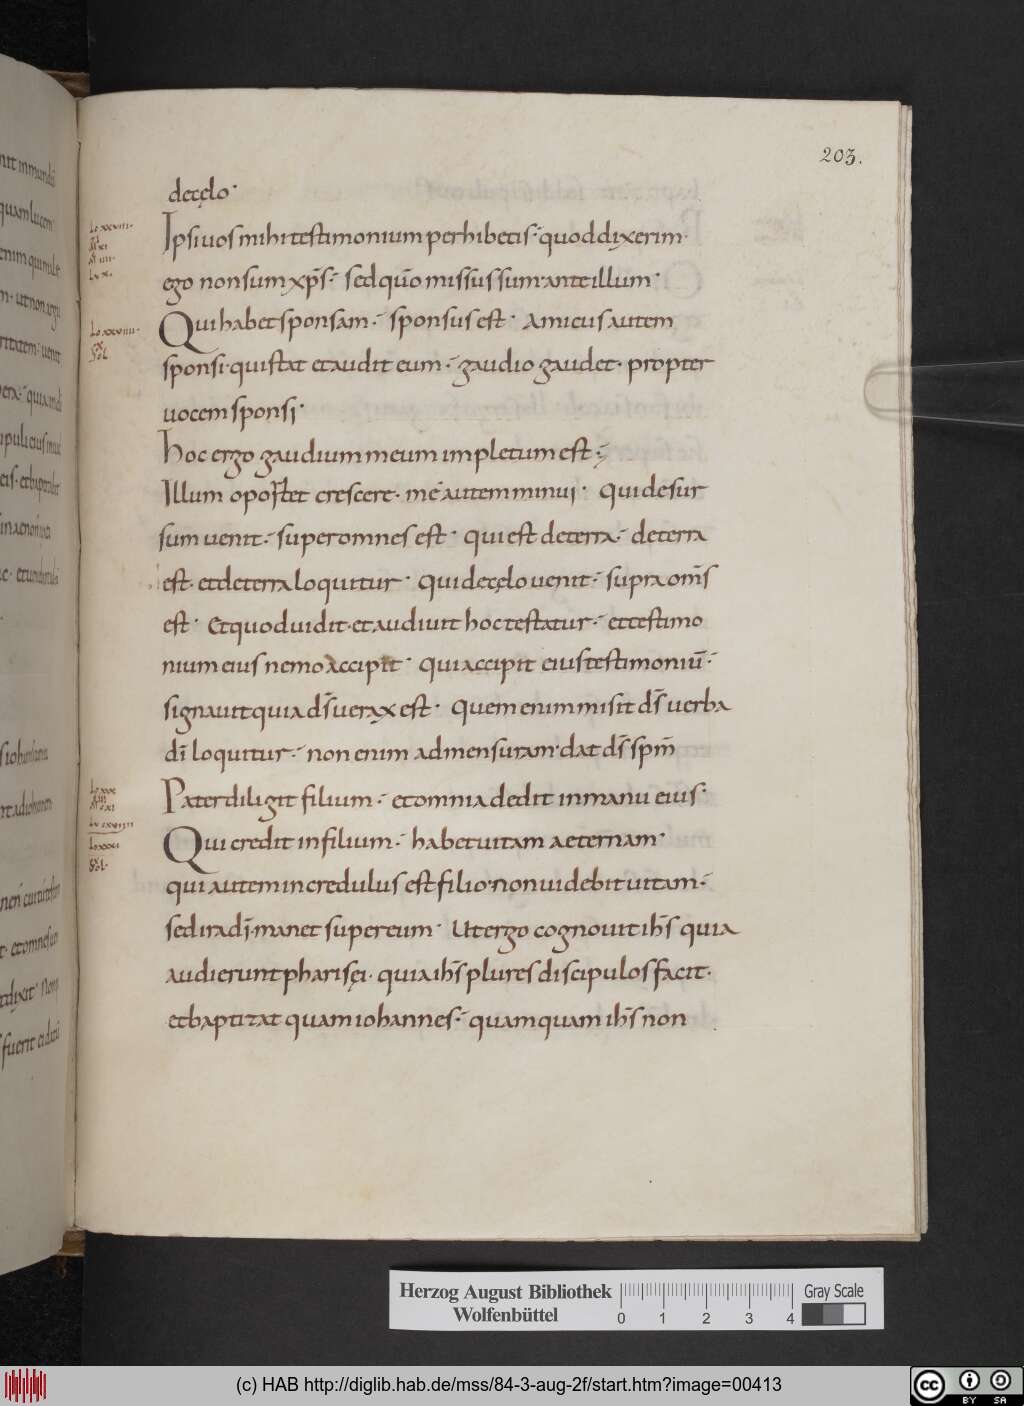 203.
decęlo·
Ipsi uos mihi testimonium perhibetis· quod dixerim·
ego non sum xp̄s· sed quō missus sum ante illum·
Qui habet sponsam· sponsus est· Amicus autem
sponsi· qui stat et audit eum· gaudio gaudet· propter
uocem sponsi·
hoc ergo gaudium meum impletum est·
Illum oportet crescere· me autem minui· Qui desur
sum uenit· super omnes est· qui est deterra· deterra
est· et deterra loquitur· Qui decęlo uenit· supra om̄s
est· Et quod uidit· et audiuit hoc testatur· et testimo
nium eius nemo accipit· Qui accipit eius testimoniū·
signauit quia d̄s uerax est· Quem enim misit d̄s uerba
dī loquitur· non enim ad mensuram· dat d̄s sp̄m
Pater diligit filium· et omnia dedit in manu eius·
Qui credit in filium· habet uitam aeternam·
qui autem incredulus est filio· non uidebit uitam·
sed ira dī· manet super eum· Ut ergo cognouit ih̄s quia
audierunt pharisęi· quia ih̄s plures discipulos facit·
et baptizat quam iohannes· quam quam ih̄s non
Herzog August Bibliothek
Wolfenbüttel
0 1 2 3 4
Gray Scale
(c) HAB http://diglib.hab.de/mss/84-3-aug-2f/start.htm?image=00413
cc BY SA